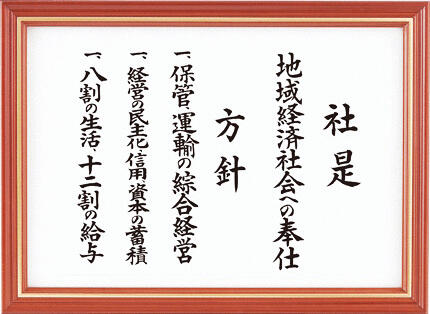 社是
地域経済社会への奉仕
方針
一、保管、運輸の綜合経営
一、経営の民主化、信用資本の蓄積
一、八割の生活、十二割の給与